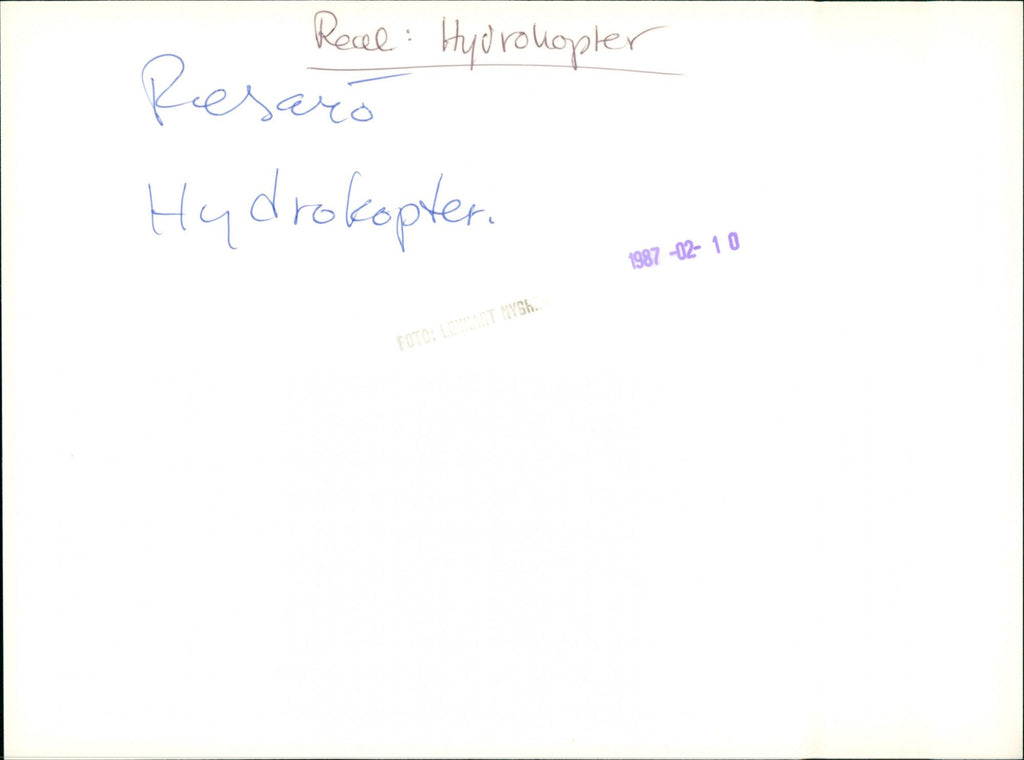 Real: Hydrokopter
Resarö
Hydrokopter.
1987-02-10
FOTO: LENNART NYGREN